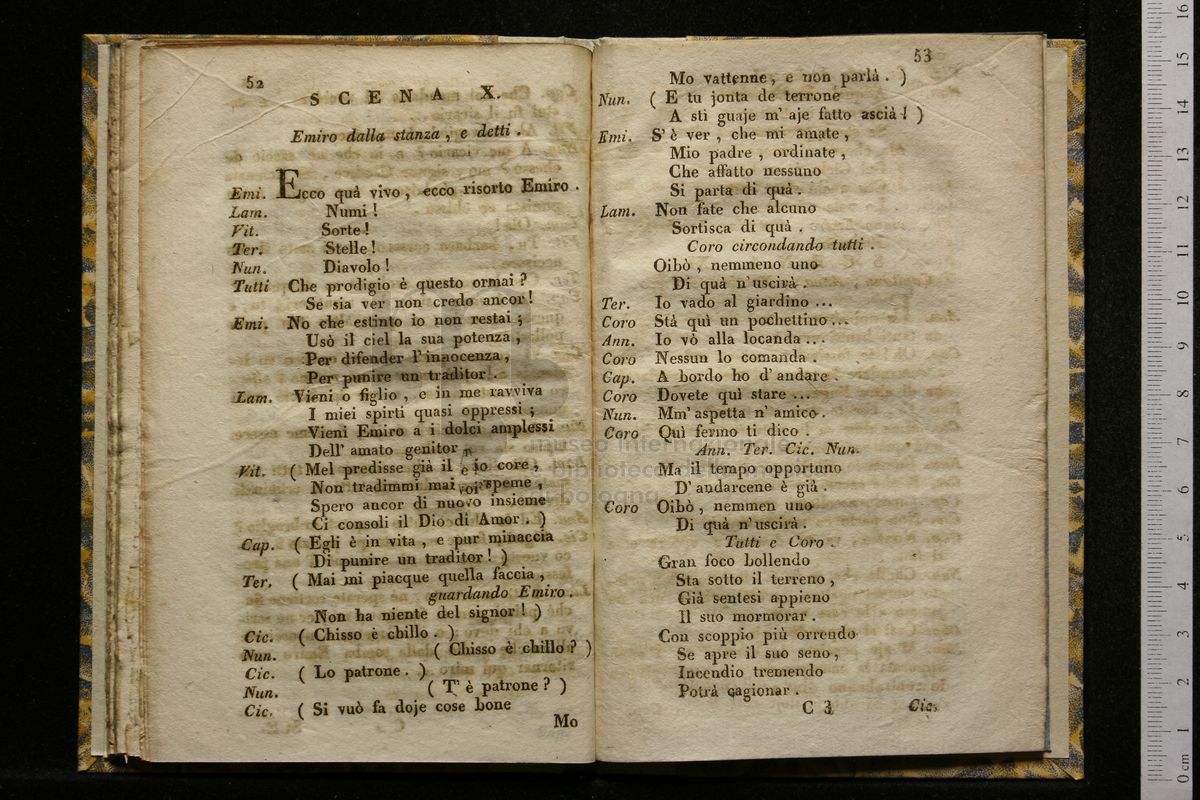 52
SCENA X.
Emiro dalla stanza , e detti .
Emi. Ecco quà vivo , ecco risorto Emiro .
Lam. Numi !
Vit. Sorte !
Ter. Stelle !
Nun. Diavolo !
Tutti Che prodigio è questo ormai ?
Se sia ver non credo ancor !
Emi. No che estinto io non restai ;
Usò il ciel la sua potenza ,
Per difender l' innocenza ,
Per punire un traditor .
Lam. Vieni o figlio , e in me ravviva
I miei spirti quasi oppressi ;
Vieni Emiro a i dolci amplessi
Dell' amato genitor
Vit. ( Mel predisse già il core ,
Non tradimmi mai speme ,
Spero ancor di nuovo insieme
Ci consoli il Dio di Amor . )
Cap. ( Egli è in vita , e pur minaccia
Di punire un traditor ! )
Ter. ( Mai mi piacque quella faccia ,
guardando Emiro .
Non ha niente del signor ! )
Cic. ( Chisso è chillo . )
Nun. ( Chisso è chillo ? )
Cic. ( Lo patrone . )
Nun. ( T' è patrone ? )
Cic. ( Si vuò fa doje cose bone
Mo
53
Mo vattenne , e non parlà . )
Nun. ( E tu jonta de terrone
A sti guaje m' aje fatto ascià ! )
Emi. S' è ver , che mi amate ,
Mio padre , ordinate ,
Che affatto nessuno
Si parta di quà .
Lam. Non fate che alcuno
Sortisca di quà .
Coro circondando tutti .
Oibò , nemmeno uno
Di quà n' uscirà .
Ter. Io vado al giardino ...
Coro Stà quì un pochettino ...
Ann. Io vò alla locanda ...
Coro Nessun lo comanda .
Cap. A bordo ho d' andare .
Coro Dovete quì stare ...
Nun. Mm' aspetta n' amico .
Coro Quì fermo ti dico .
Ann. Ter. Cic. Nun.
Ma il tempo opportuno
D' andarcene è già .
Coro Oibò , nemmen uno
Di quà n' uscirà .
Tutti e Coro .
Gran foco bollendo
Sta sotto il terreno ,
Già sentesi appieno
Il suo mormorar .
Con scoppio più orrendo
Se apre il suo seno ,
Incendio tremendo
Potrà cagionar .
C 3 Cic.
museo internazionale
biblioteca
bologna
0 cm 1 2 3 4 5 6 7 8 9 10 11 12 13 14 15 16